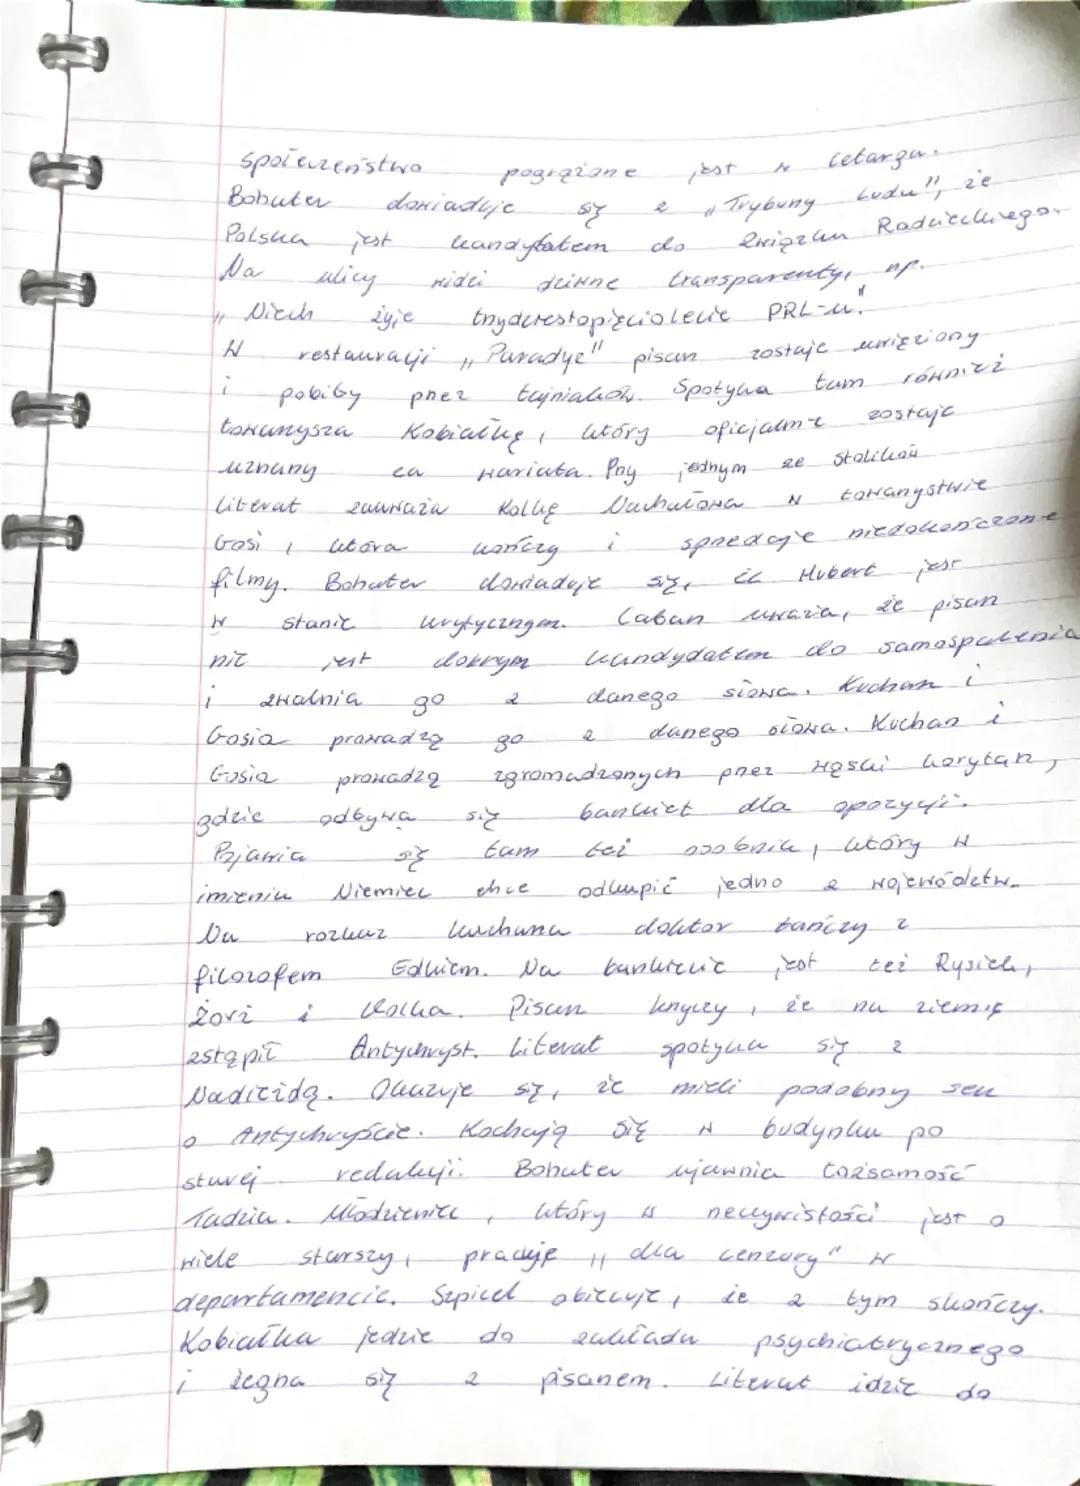 społeczeństwo pogrążone jest w letargu.
Bohater dowiaduje się z „Trybuny Ludu", że
Polska jest kandydatem do Związku Radzieckiego.
Na ulicy widzi dziwne transparenty, np.
„Niech żyje trzydziestopięciolecie PRL-u!"
W restauracji „Paradyz" pisarz zostaje uwięziony
i pobity przez tajniaków. Spotyka tam również
towarzysza Kobiałkę, który oficjalnie zostaje
uznany za wariata. Przy jednym ze stolików
literat zauważa Kolkę Nachałowa w towarzystwie
Gosi, która kończy i sprzedaje niedokończone
filmy. Bohater dowiaduje się, że Hubert jest
w stanie krytycznym. Caban uważa, że pisarz
nie jest dobrym kandydatem do samospalenia
i zwalnia go z danego słowa. Kucharz i
Gosia prowadzą go z danego słowa. Kucharz i
Gosia prowadzą zgromadzonych przez wąski korytarz,
gdzie odbywa się bankiet dla opozycji.
Pojawia się tam też osobnik, który w
imieniu Niemiec chce odkupić jedno z województw.
Na rozkaz kucharza doktor tańczy z
filozofem Edkiem. Na bankiecie jest też Rysiek,
Żorż i Kolka. Pisarz krzyczy, że na ziemię
zstąpił Antychryst. Literat spotyka się z
Nadieżdą. Okazuje się, że mieli podobny sen
o Antychryście. Kochają się w budynku po
starej redakcji. Bohater ujawnia tożsamość
Tadzia. Młodzieniec, który w rzeczywistości jest o
wiele starszy, pracuje „dla cenzury" w
departamencie. Szpicel obiecuje, że z tym skończy.
Kobiałka jedzie do zakładu psychiatrycznego
i żegna się z pisarzem. Literat idzie do